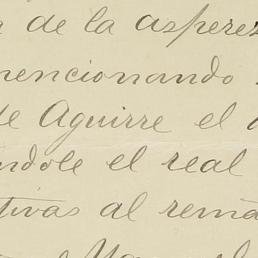 de la asperez
mencionando
de Aguirre el
ndole el real
tivas al rema